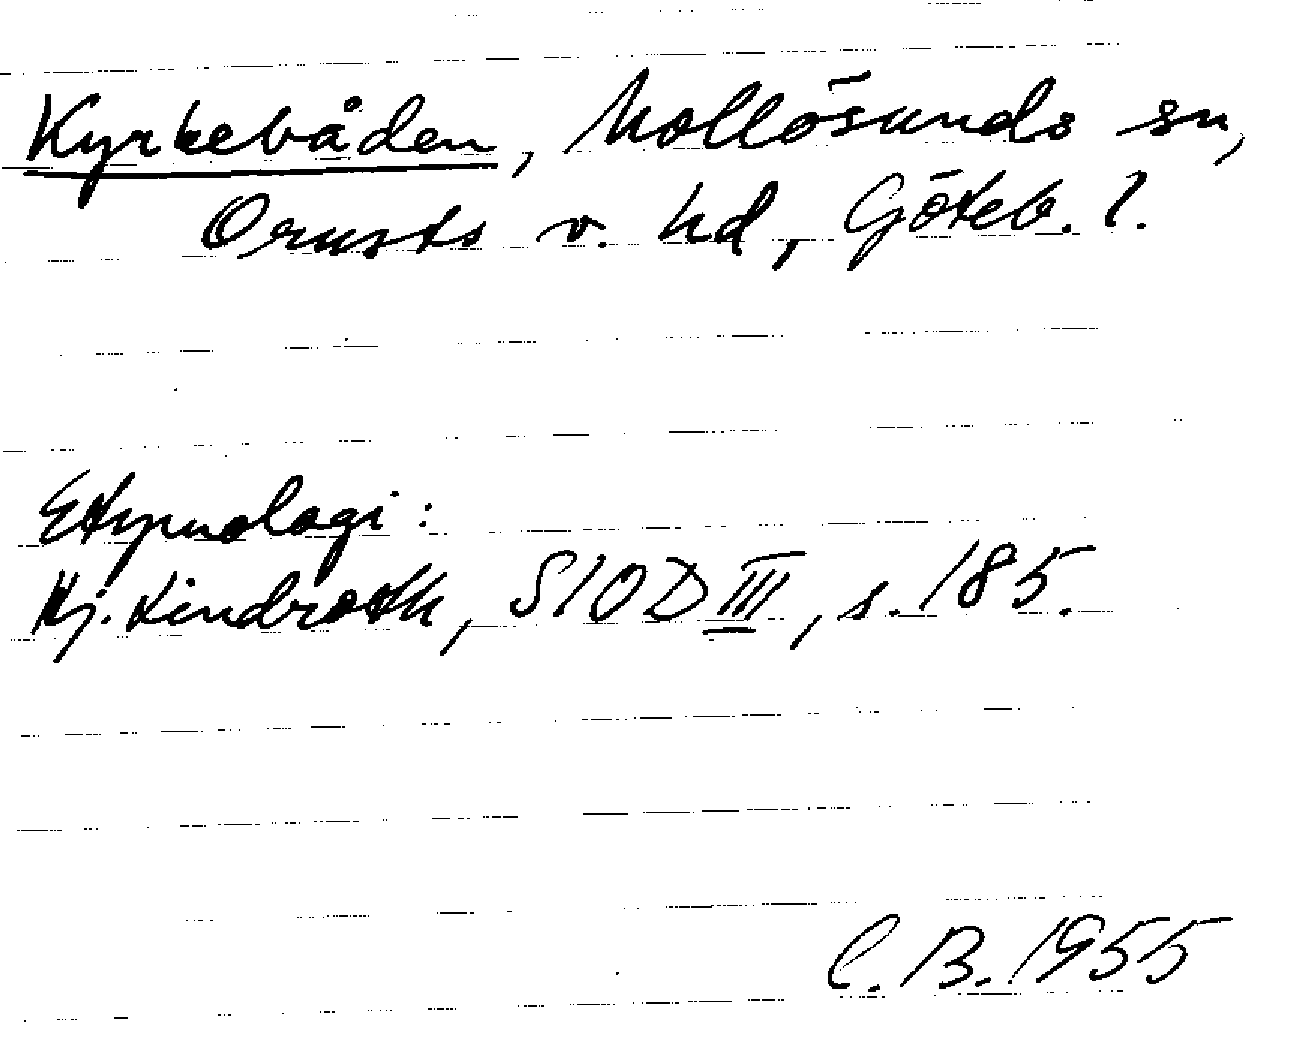 Kyrkebåden, Mollösunds sn,
Orusts v. hd, Göteb. l.
Etymologi:
Hj. Lindroth, SIOD III, s. 185.
C. B. 1955